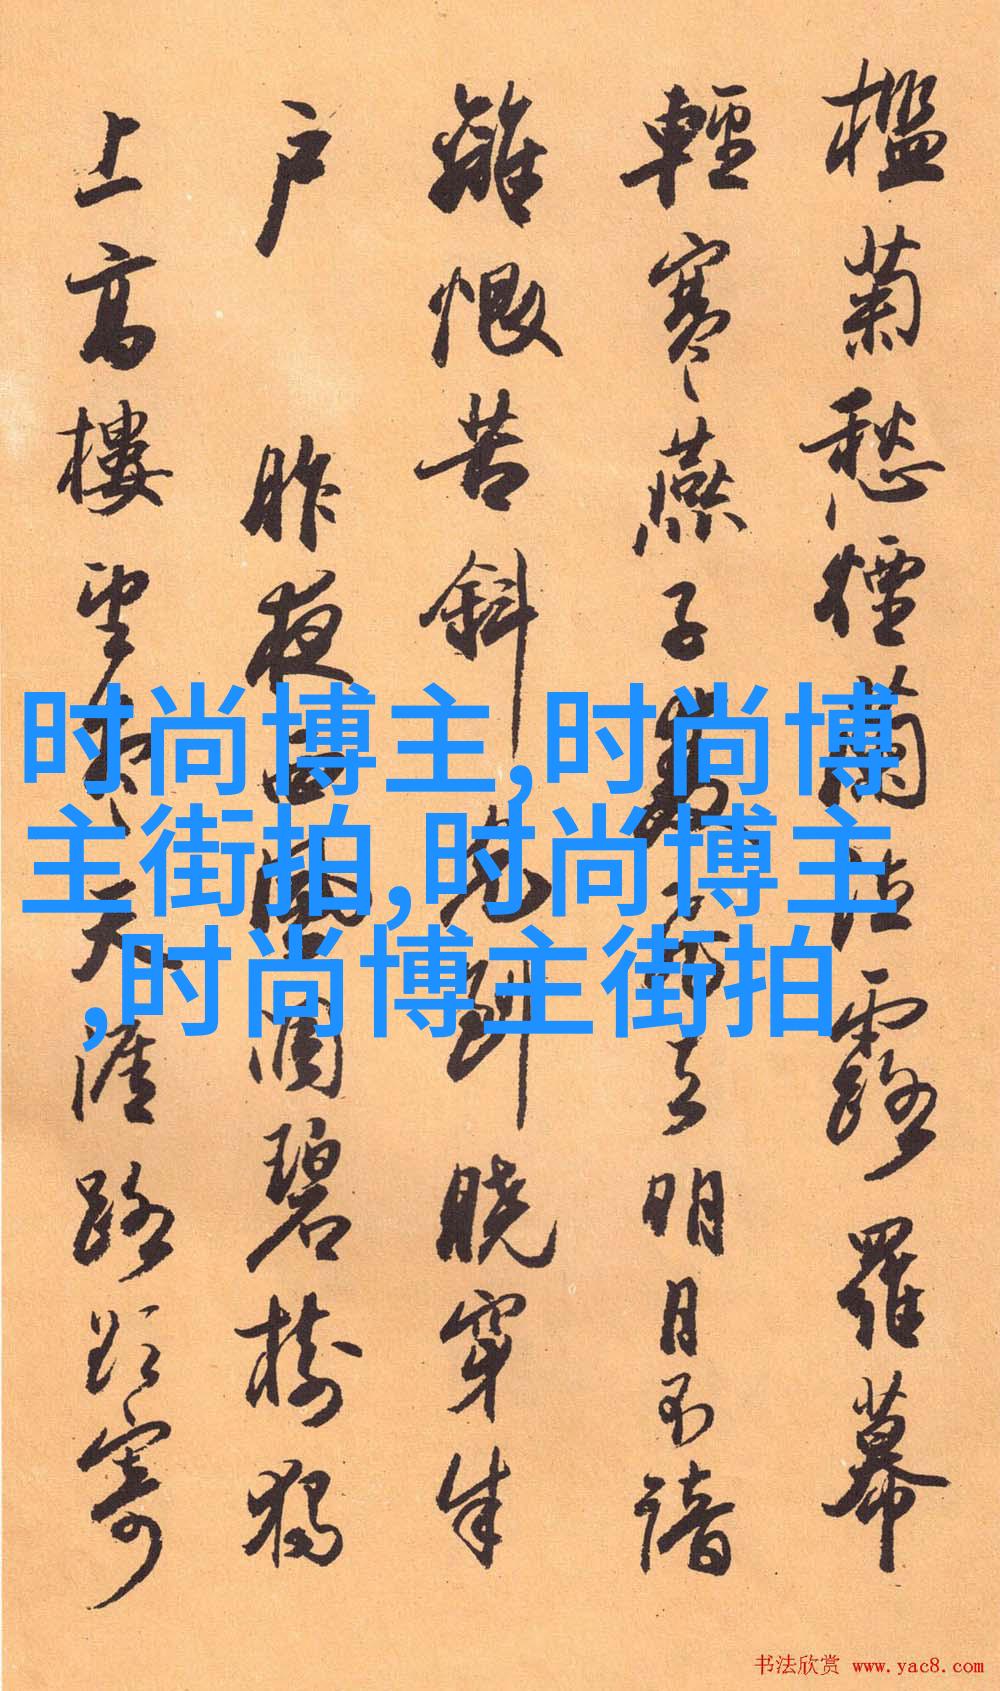 檻菊愁煙蘭泣露羅幕
輕寒燕子雙飛去明月不諳
離恨苦斜光到曉穿朱
户 昨夜西風凋碧樹獨
上高樓望盡天涯路欲寄
时尚博主,时尚博
主街拍,时尚博主
,时尚博主街拍
书法欣赏 www.yac8.com